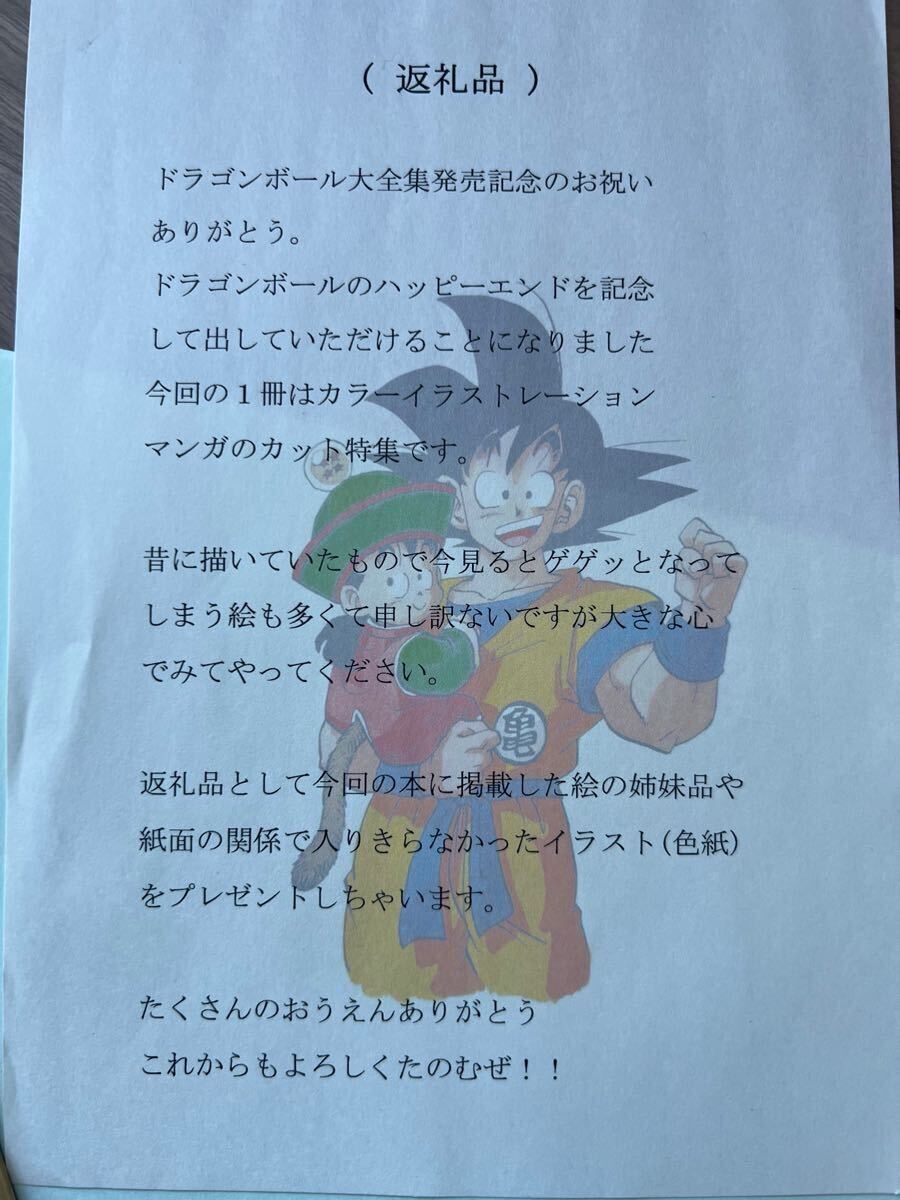 ( 返礼品 )
ドラゴンボール大全集発売記念のお祝い
ありがとう。
ドラゴンボールのハッピーエンドを記念
して出していただけることになりました
今回の１冊はカラーイラストレーション
マンガのカット特集です。
昔に描いていたもので今見るとゲゲッとなって
しまう絵も多くて申し訳ないですが大きな心
でみてやってください。
亀
返礼品として今回の本に掲載した絵の姉妹品や
紙面の関係で入りきらなかったイラスト(色紙)
をプレゼントしちゃいます。
たくさんのおうえんありがとう
これからもよろしくたのむぜ！！